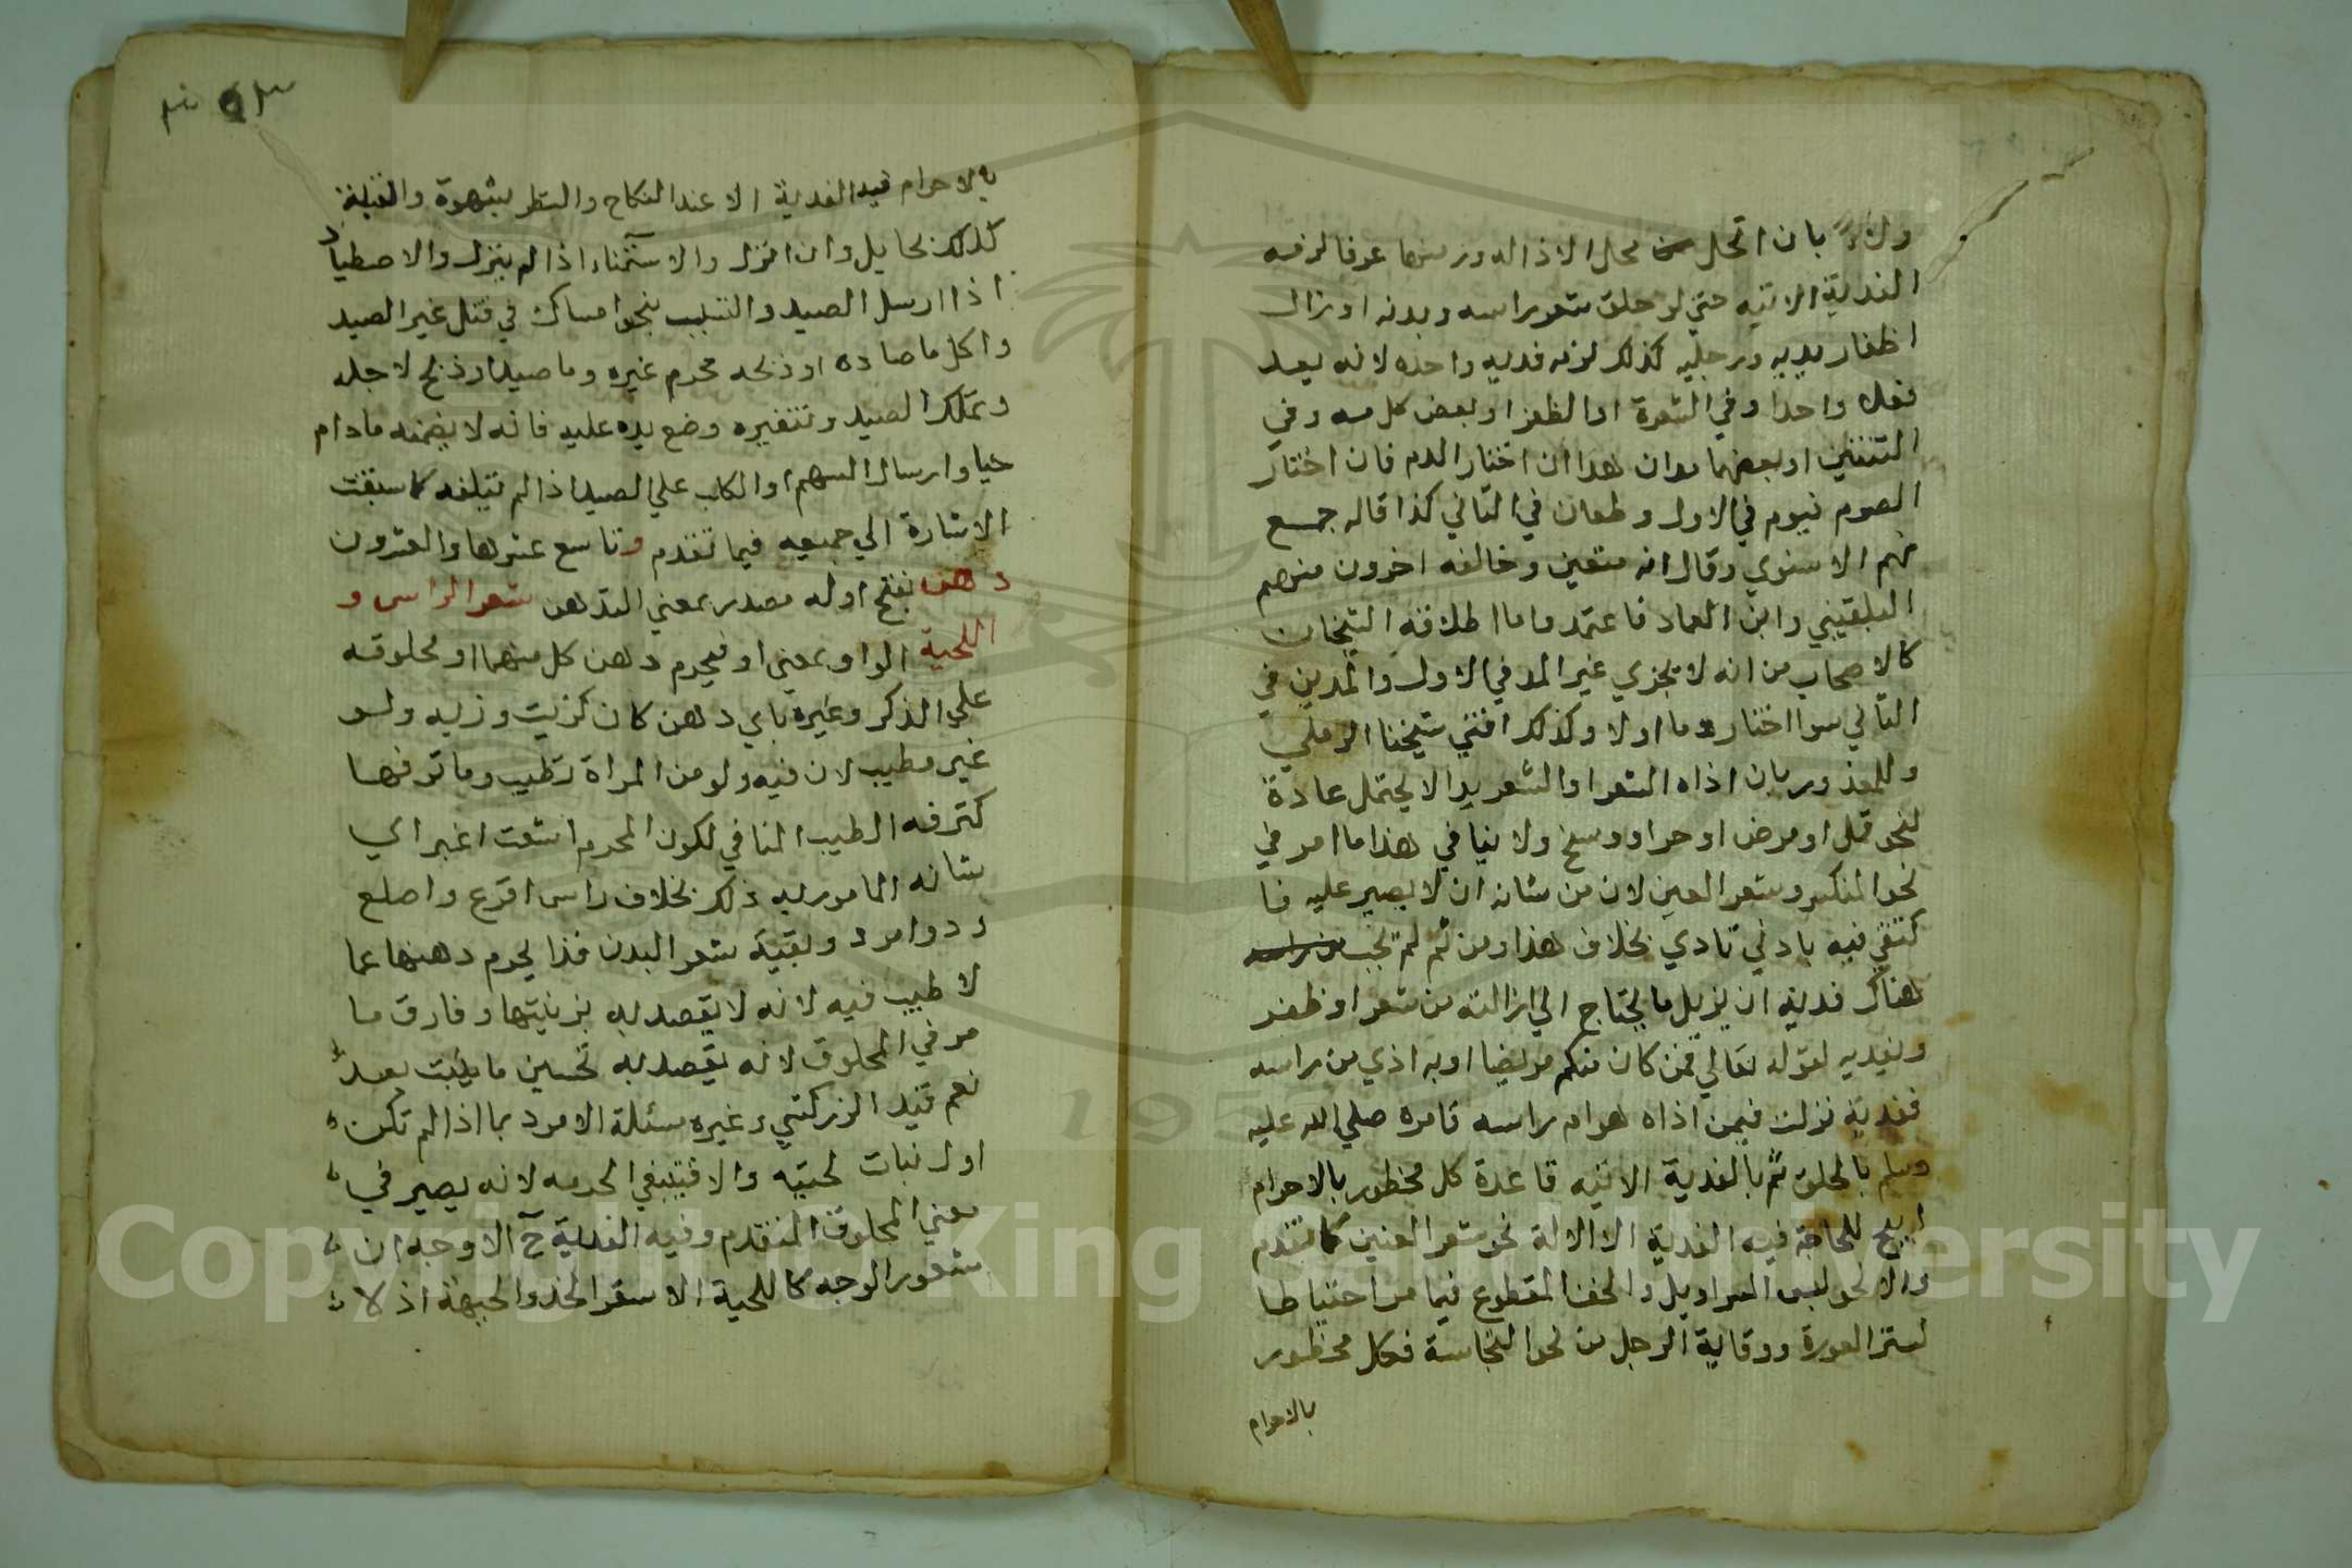 ولاء بان اتحل محل الازالة ورمنها عرفا لزمه
الفدية الاتيه حتي لو حلق شعر راسه وبدنه او ازال
اظفار يديه ورجليه كذلك لزمه فديه واحده لانه يعد
فعلا واحدا وفي الشعرة او الظفر او بعض كل مد وفي
الثنتين او بعضهما مدان هذا ان اختار الدم فان اختار
الصوم فيوم في الاول و في الثاني كذا قاله جمع
منهم الاسنوي وقال انه متعين وخالفه اخرون منهم
البلقيني وابن العماد فاعتمدوا ما اطلاقه الشيخان
كالاصحاب من انه لا يجزي غير المد في الاول والمدين في
الثاني سوا اختار دما اولا وكذلك افتي شيخنا الرملي
وللمعذور بان اذاه الشعر او الشعر يدا لا يحتمل عادة
لنحو قمل او مرض او حر او وسخ ولا ينافي هذا ما مر في
نحو المنكسر وشعر العين لان من شانه ان لا يصبر عليه فا
كتفي فيه بادني تادي بخلاف هذا ومن ثم لم تجب
هناك فدية ان يزيل ما يحتاج الي ازالته من شعر او ظفر
ويفديه لقوله تعالي فمن كان منكم مريضا او به اذي من راسه
ففدية نزلت فيمن اذاه هوام راسه فامره صلي الله عليه
وسلم بالحلق ثم بالفدية الاتيه قاعدة كل محظور بالاحرام
ابيح للحاجة فيه الفدية الا ازالة نحو شعر العينين كما تقدم
والا نحو لبس السراويل والخف المقطوع فيما مر احتياطا
لستر العورة ووقاية الرجل من نحو النجاسة فكل محظور
بالاحرام
بالاحرام فيه الفدية الا عند النكاح والنظر بشهوة والقبلة
كذلك بحايل وان انزل والاستمناء اذا لم ينزل والاصطياد
اذا ارسل الصيد والتسبب بنحو امساك في قتل غير الصيد
واكل ما صاده او ذبحه محرم غيره وما صيد او ذبح لاجله
وتملك الصيد وتنفيره وضع يده عليه فانه لا يضمنه مادام
حيا وارسال السهم او الكلب علي الصيد اذا لم يتلفه كما سبقت
الاشارة الي جميعه فيما تقدم وتاسع عشرها والعشرون
دهن بفتح اوله مصدر بمعني التدهن شعر الراس و
اللحية الواو بمعني او فيحرم دهن كل منهما او محلوقه
علي الذكر وغيره باي دهن كان كزيت وزبد ولو
غير مطيب لان فيه ولو من المراة تطيب وما ترفها
كترفه الطيب المنافي لكون المحرم اشعث اغبر اي
شانه المامور به ذلك بخلاف راس اقرع واصلع
ودو امرد وبقية شعر البدن فذا يحرم دهنها عما
لا طيب فيه لانه لا يقصد به بزينتها وفارق ما
مر في المحلوق لانه يقصد به تحسين ما ينبت بعد
نعم قيد الزركشي وغيره مسئلة الامرد بما اذا لم تكن
اول نبات لحيته والا فينبغي الحرمه لانه يصير في
معني المحلوق المتقدم وفيه الفدية ح الاوجه ان
شعور الوجه كاللحية الا شعر الخد والجبهة اذ لا